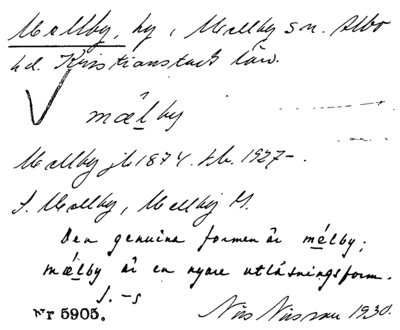 Mellby, by, Mellby sn. Albo
hd. Kristianstads län.
mælby
Mellby jb 1874. tb. 1927-.
S. Mellby, Mellby M.
Den genuina formen är mélby;
mǽlby är en nyare utläsningsform.
S.-s
Nr 5905. Nils Nilsson 1930.